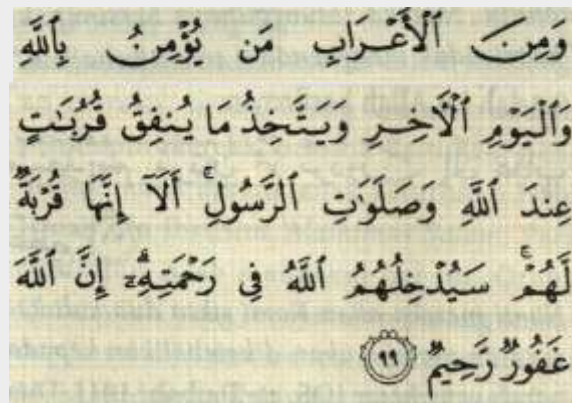 وَمِنَ ٱلْأَعْرَابِ مَن يُؤْمِنُ بِٱللَّهِ
وَٱلْيَوْمِ ٱلْآخِرِ وَيَتَّخِذُ مَا يُنفِقُ قُرُبَٰتٍ
عِندَ ٱللَّهِ وَصَلَوَٰتِ ٱلرَّسُولِ ۚ أَلَآ إِنَّهَا قُرْبَةٌ
لَّهُمْ ۚ سَيُدْخِلُهُمُ ٱللَّهُ فِى رَحْمَتِهِۦٓ ۗ إِنَّ ٱللَّهَ
غَفُورٌ رَّحِيمٌ ٩٩